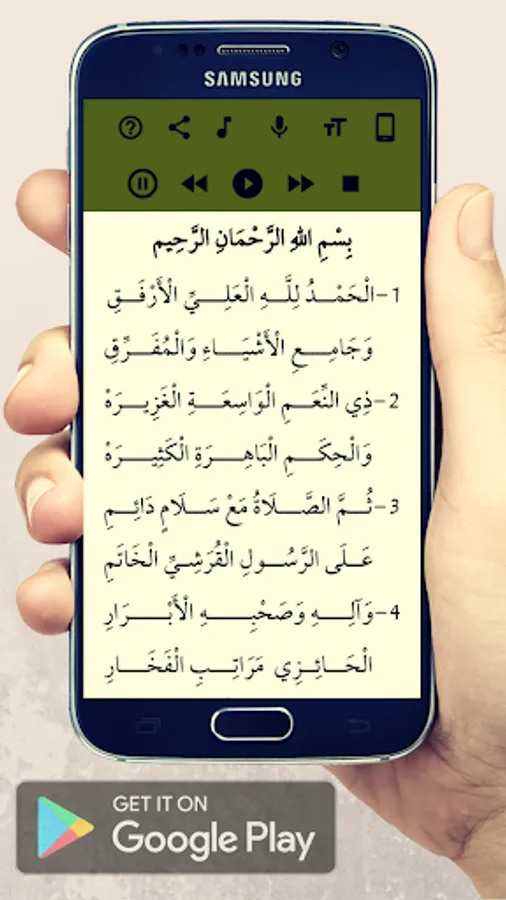 SAMSUNG
بِسْمِ اللهِ الرَّحْمَانِ الرَّحِيم
1-الْحَمْدُ لِلَّهِ الْعَلِيِّ الْأَرْفَقِ
وَجَامِعِ الْأَشْيَاءِ وَالْمُفَرِّقِ
2-ذِي النِّعَمِ الْوَاسِعَةِ الْغَزِيرَهْ
وَالْحِكَمِ الْبَاهِرَةِ الْكَثِيرَهْ
3-ثُمَّ الصَّلَاةُ مَعْ سَلَامٍ دَائِمِ
عَلَى الرَّسُولِ الْقُرَشِيِّ الْخَاتَمِ
4-وَآلِهِ وَصَحْبِهِ الْأَبْرَارِ
الْحَائِزِي مَرَاتِبِ الْفَخَارِ
GET IT ON
Google Play